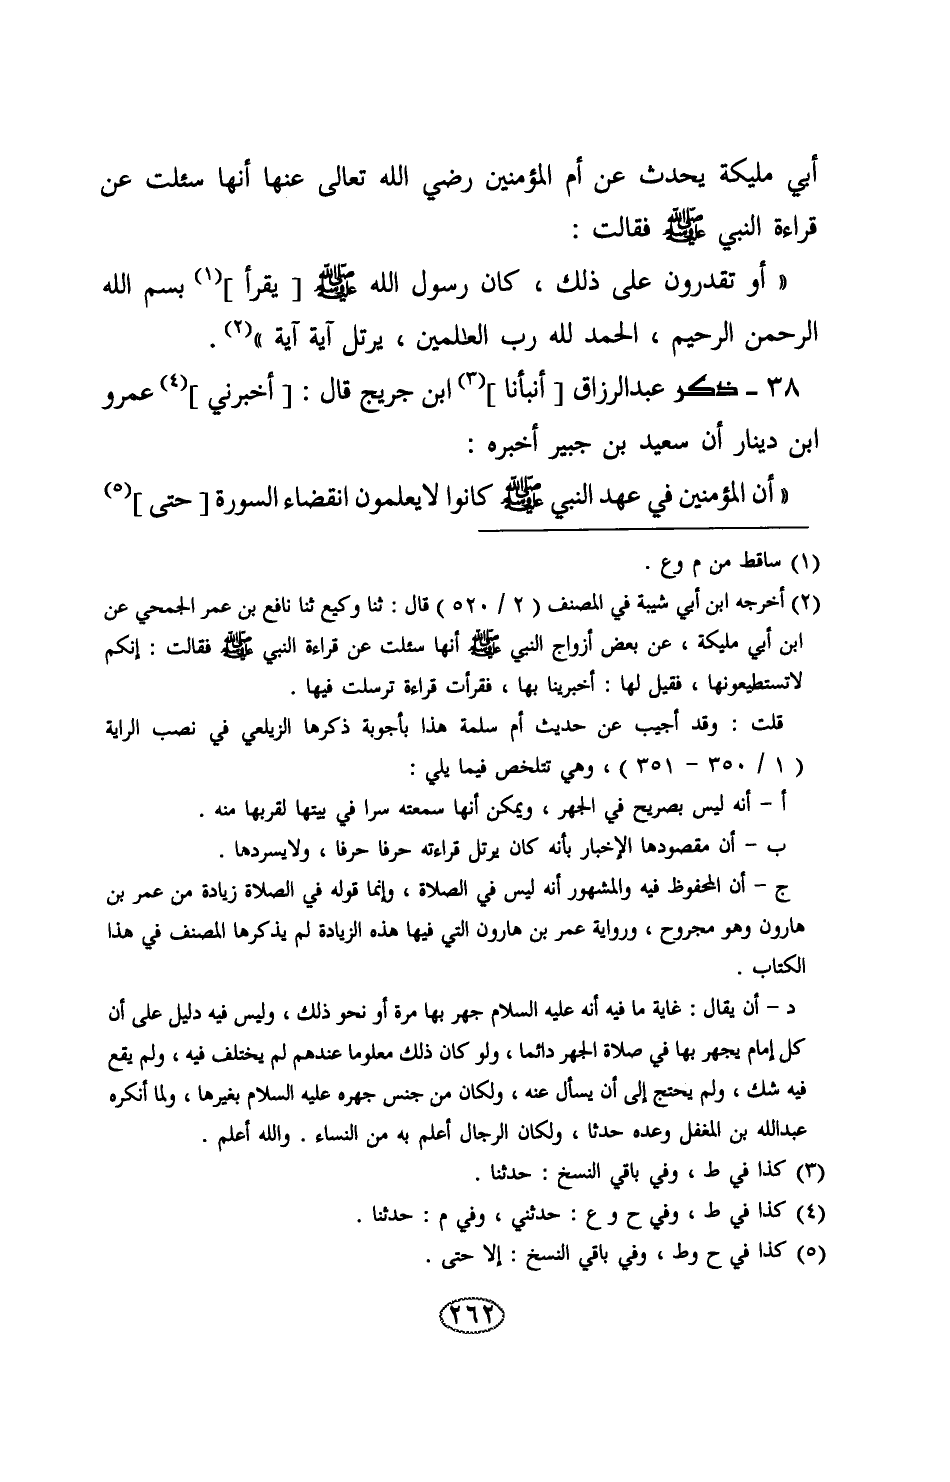 أبي مليكة يحدث عن أم المؤمنين رضي الله تعالى عنها أنها سئلت عن
قراءة النبي ﷺ فقالت :
« أو تقدرون على ذلك ، كان رسول الله ﷺ [ يقرأ ](١) بسم الله
الرحمن الرحيم ، الحمد لله رب العالمين ، يرتل آية آية »(٢) .
٣٨ ـ ذكر عبدالرزاق [ أنبأنا ](٣) ابن جريج قال : [ أخبرني ](٤) عمرو
ابن دينار أن سعيد بن جبير أخبره :
« أن المؤمنين في عهد النبي ﷺ كانوا لايعلمون انقضاء السورة [ حتى ](٥)
(١) ساقط من م وع .
(٢) أخرجه ابن أبي شيبة في المصنف ( ٢ / ٥٢٠ ) قال : ثنا وكيع ثنا نافع بن عمر الجمحي عن
ابن أبي مليكة ، عن بعض أزواج النبي ﷺ أنها سئلت عن قراءة النبي ﷺ فقالت : إنكم
لاتستطيعونها ، فقيل لها : أخبرينا بها ، فقرأت قراءة ترسلت فيها .
قلت : وقد أجيب عن حديث أم سلمة هذا بأجوبة ذكرها الزيلعي في نصب الراية
( ١ / ٣٥٠ - ٣٥١ ) ، وهي تتلخص فيما يلي :
أ - أنه ليس بصريح في الجهر ، ويمكن أنها سمعته سرا في بيتها لقربها منه .
ب - أن مقصودها الإخبار بأنه كان يرتل قراءته حرفا حرفا ، ولايسردها .
ج - أن المحفوظ فيه والمشهور أنه ليس في الصلاة ، وإنما قوله في الصلاة زيادة من عمر بن
هارون وهو مجروح ، ورواية عمر بن هارون التي فيها هذه الزيادة لم يذكرها المصنف في هذا
الكتاب .
د - أن يقال : غاية ما فيه أنه عليه السلام جهر بها مرة أو نحو ذلك ، وليس فيه دليل على أن
كل إمام يجهر بها في صلاة الجهر دائما ، ولو كان ذلك معلوما عندهم لم يختلف فيه ، ولم يقع
فيه شك ، ولم يحتج إلى أن يسأل عنه ، ولكان من جنس جهره عليه السلام بغيرها ، ولما أنكره
عبدالله بن المغفل وعده حدثا ، ولكان الرجال أعلم به من النساء . والله أعلم .
(٣) كذا في ط ، وفي باقي النسخ : حدثنا .
(٤) كذا في ط ، وفي ح و ع : حدثني ، وفي م : حدثنا .
(٥) كذا في ح وط ، وفي باقي النسخ : إلا حتى .
٢٦٢